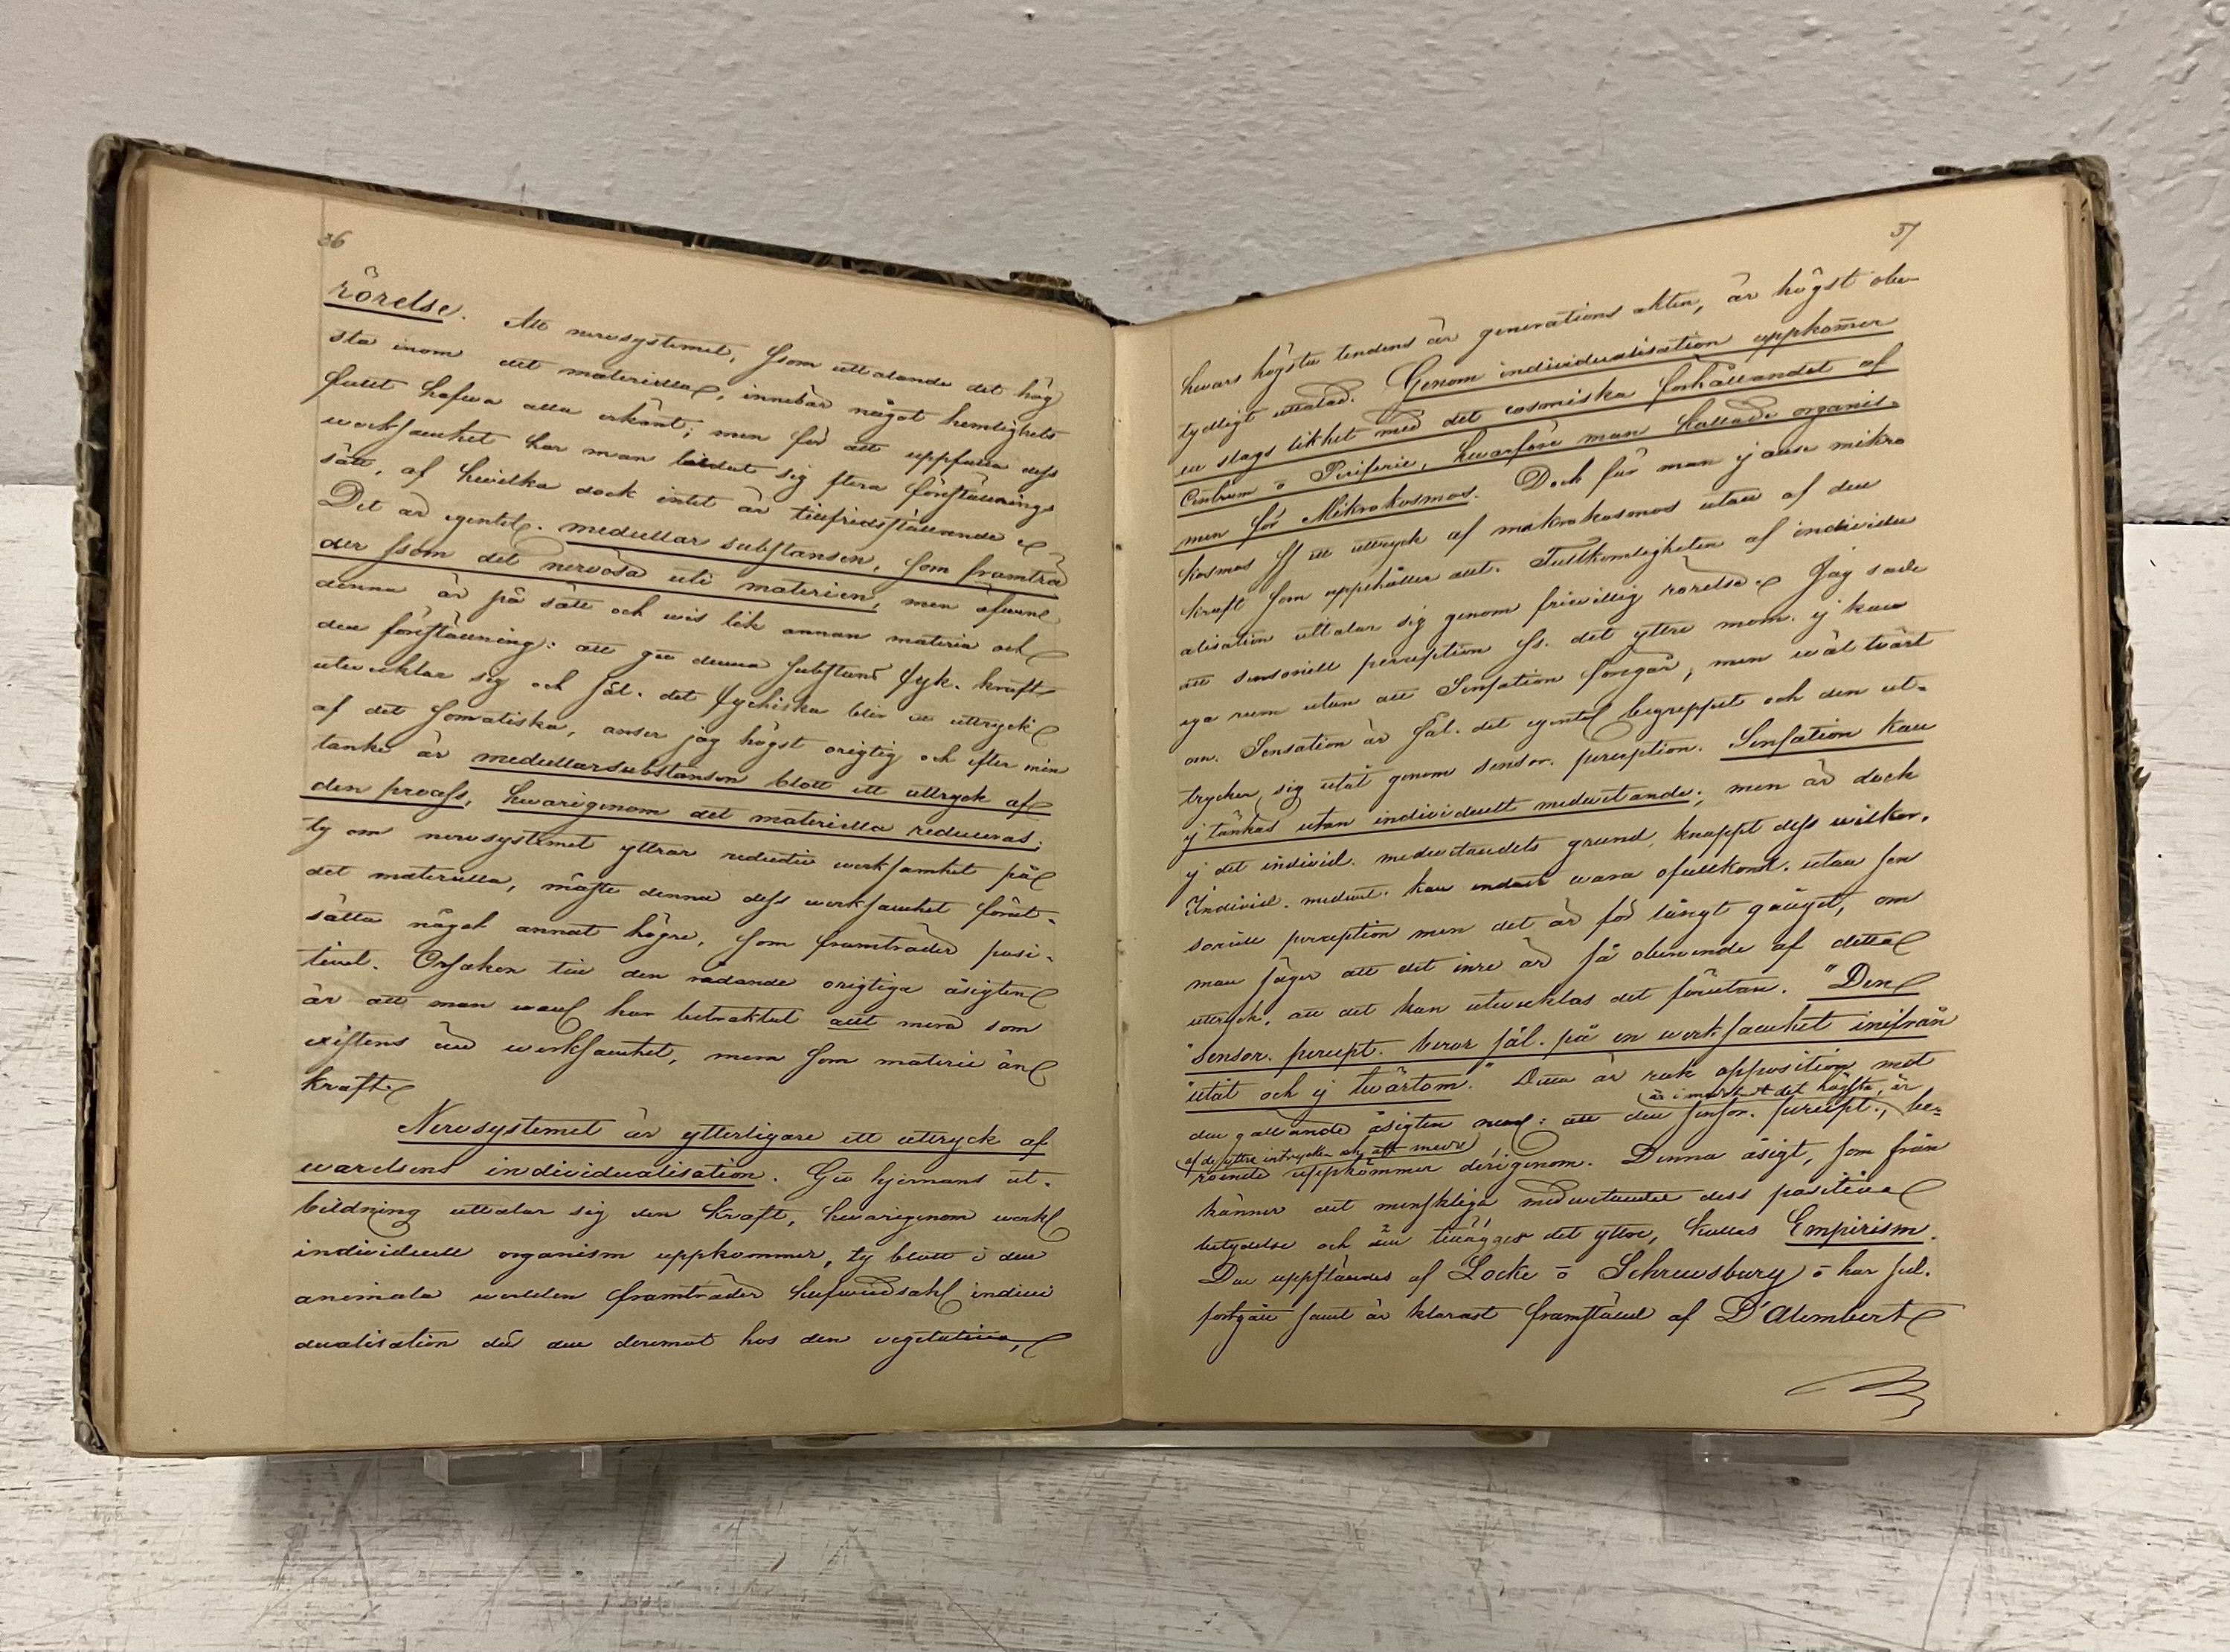 36
rörelse. Att nervsystemet, ssom uttalande det hög
sta inom det materiella, innebär något hemlighets
fullt hafwa alla erkänt; men för att uppfatta dess
werksamhet har man bildat sig flera föreställnings
sätt, af hwilka dock intet är tillfridsställande
Det är egentl. medullar substansen, som framträ
der ssom det nervösa uti materien, men äfwen
denna är på sätt och wis lik annan materia och
den föreställning: att gm denna substans psyk. kraft
utwecklar sig och sål. det psychiska blir ett uttryck
af det somatiska, anser jag högst origtig och efter min
tanke är medullarsubstansen blott ett uttryck af
den process, hwarigenom det materiella reduceras;
ty om nervsystemet yttrar reductiv werksamhet på
det materiella, måste denna dess werksamhet förut-
sätta något annat högre, som framträder posi-
tivt. Orsaken till den rådande origtiga åsigten
är att man har betraktat allt mera som
existens än werksamhet, mera som materie än
kraft.
Nervsystemet är ytterligare ett uttryck af
warelsens individualisation. Gm hjernans ut-
bildning uttalar sig den kraft, hwarigenom
individuell organism uppkommer, ty blott i den
animala werlden framträder hufwudsakl indivi
dualisation då den deremot hos den vegetativa,
37
hwars högsta tendens är generations akten, är högst
tydligt uttalad. Genom individualisation uppkom̄er
en slags likhet med det cosmiska förhållandet af
Centrum o Periferie, hwarföre man kallade organis-
men för Mikrokosmos. Dock får man ej anse mikro
kosmos ss ett uttryck af makrokosmos utan af den
kraft som uppehåller allt. Fullkomligheten af individu
alisation uttalar sig genom friwillig rörelse. Jag sade
att sensoriell perception ss. det yttre mom. ej kan
ega rum utan att Sensation föregår, men wäl twärt
om. Sensation är sål. det egentl begreppet och den ut-
trycker sig utåt genom sensor. perception. Sensation kan
ej tänkas utan individuellt medwetande; men är dock
ej det individ. medwetandets grund, knappt dess wilkor.
Individ. medwet. kan endast wara ofullkoml. utan sen
soriell perception men det är för långt gånget, om
man säger att det inre är så beroende af detta
uttryck, att det kan utwecklas det förutan. "Den
"sensor. percept. beror sål. på en werksamhet inifrån
"utåt och ej twärtom." Detta är rak opposition mot
är i mot det högsta, är
den gällande åsigten : att den sensor. percept., be-
af de yttre intrycken
roende uppkommer derigenom. Denna åsigt, som från
känner det menskliga medwetandet dess positiva
betydelse och tillägges det yttre, kallas Empirism.
Den uppställdes af Locke o Schrewsbury o har sed.
fortgått samt är klarast framställd af D'Alembert